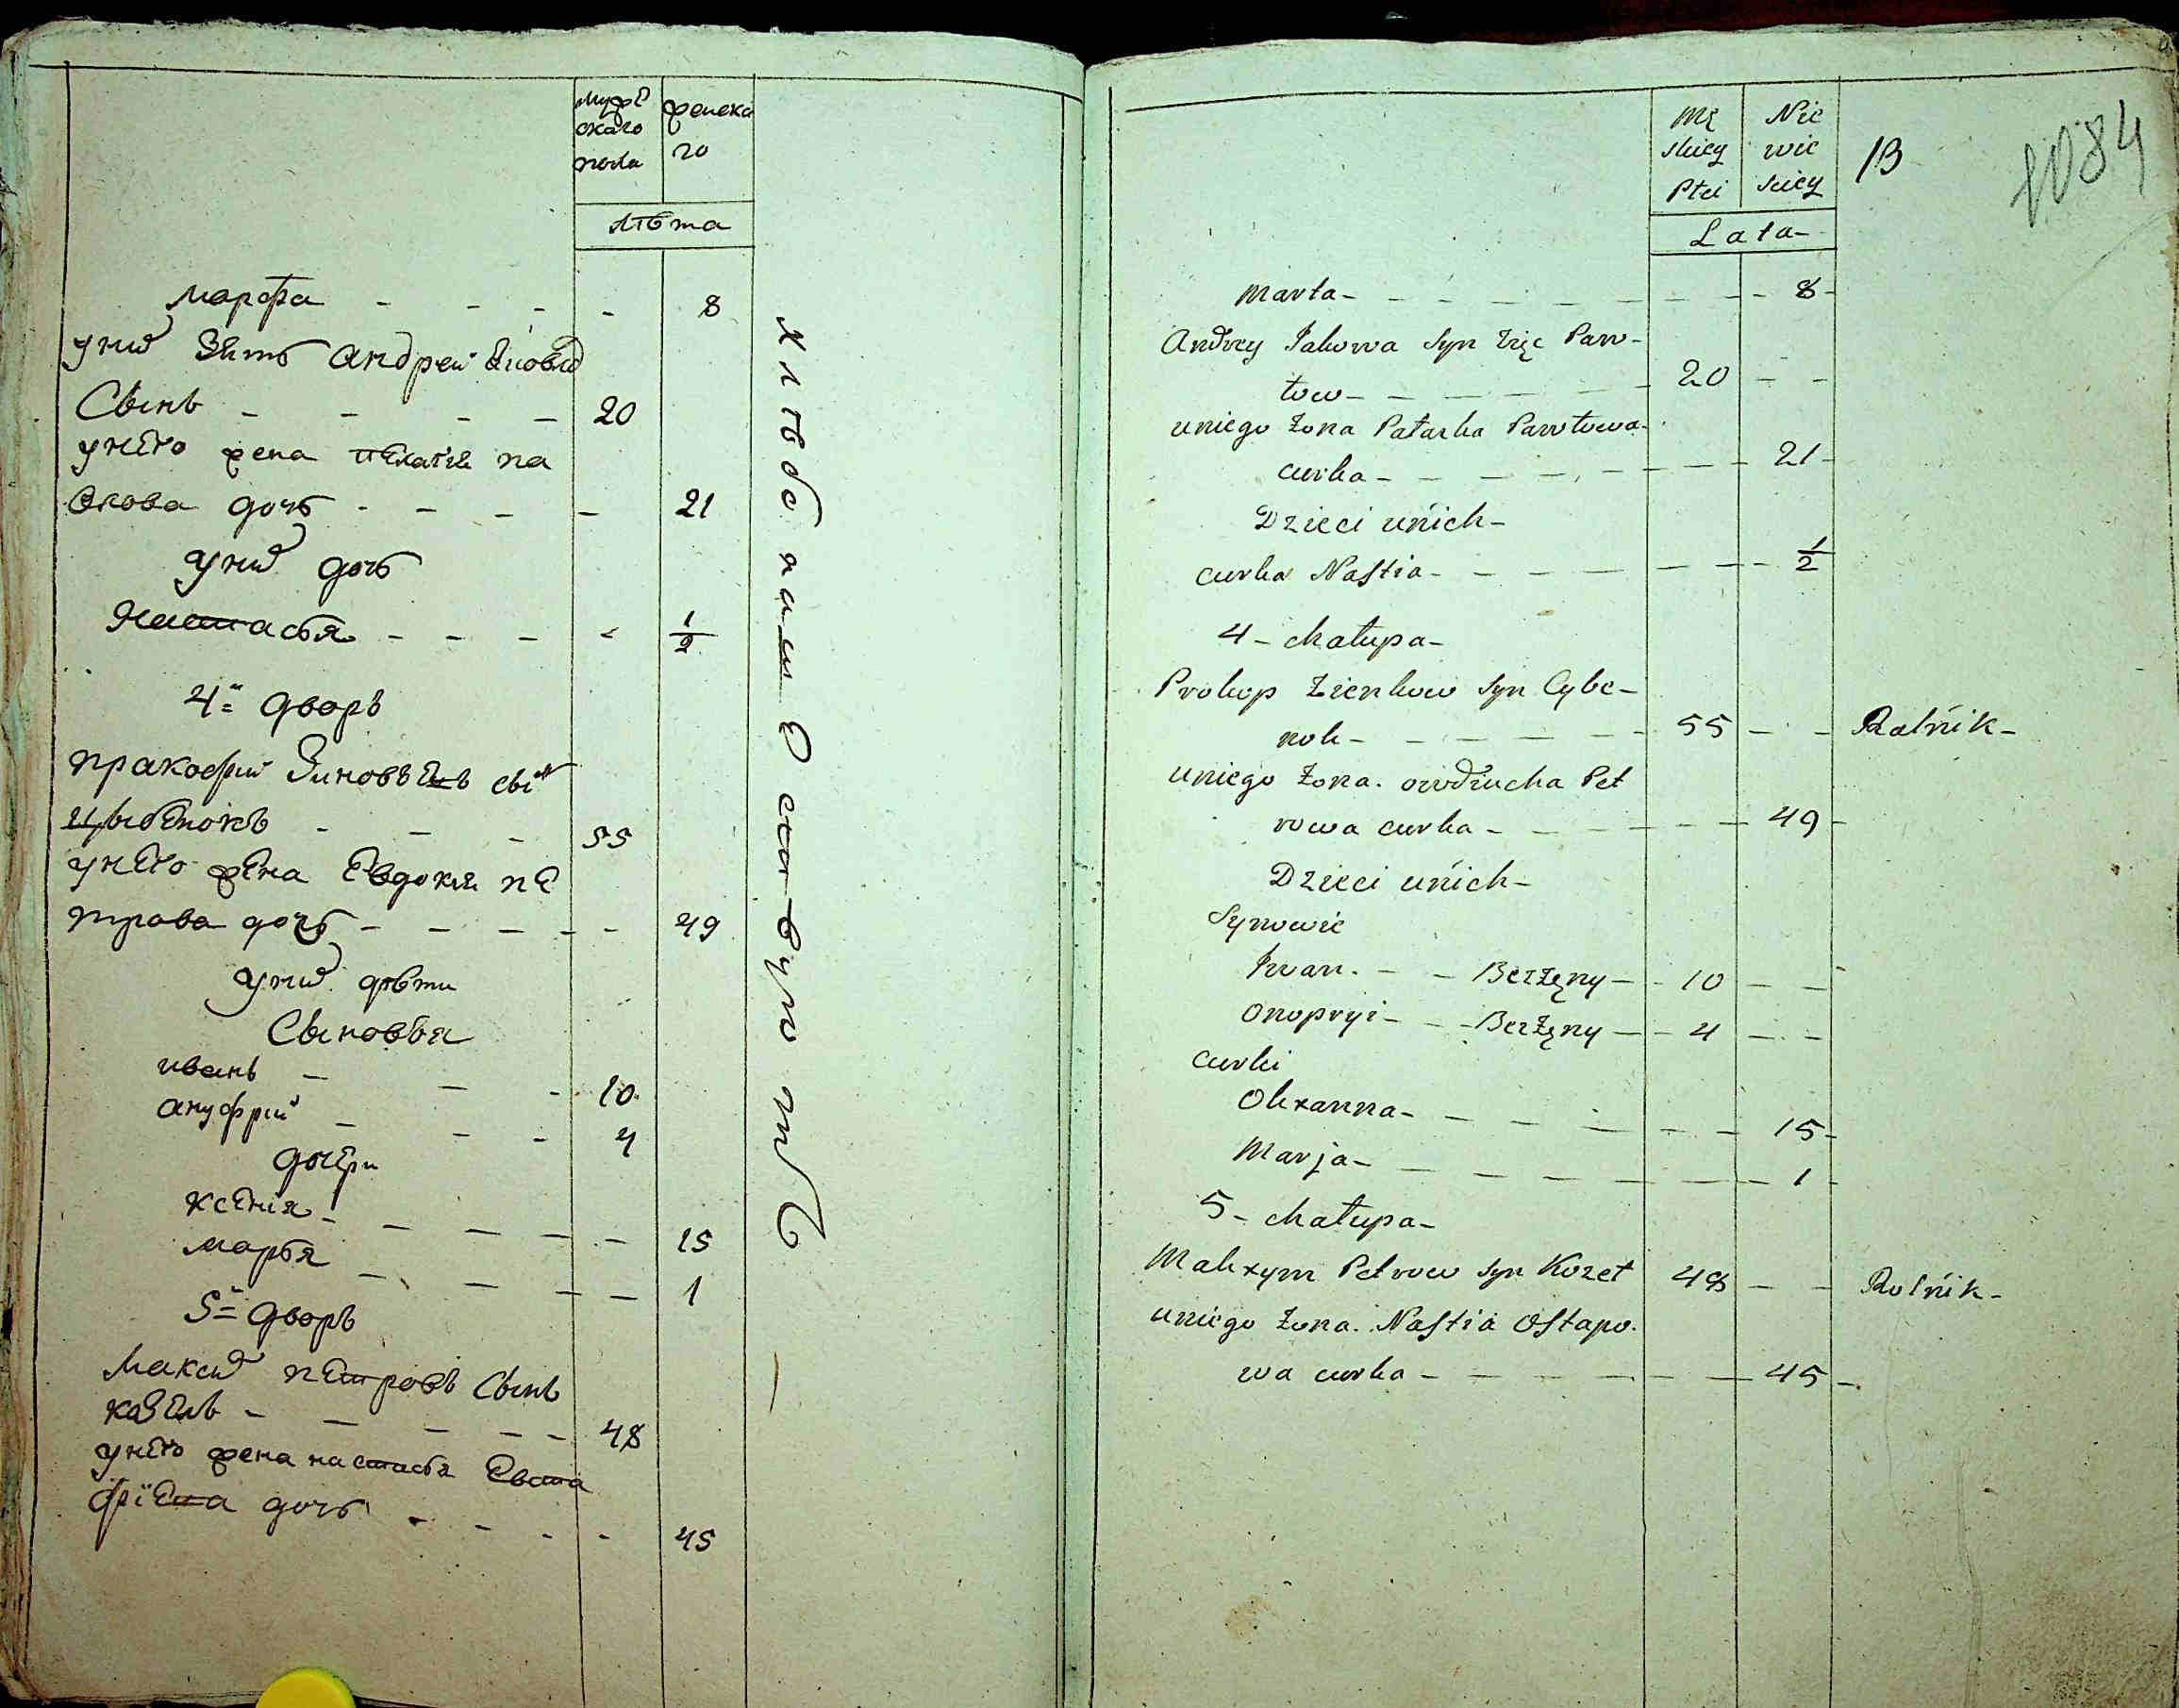 мужс женска
каго го
пола
лѣта
марфа - - - - 8
у них зять Андрей Яковлв
Сынъ - - - - 20
у него жена Пелагия па
влова дочь - - - - 21
у них дочь
Настасья - - - - 1/2
4й дворъ
пракофий Зиновьевъ сын
цыбенокъ - - - 55
у него жена Евдокия пе
трова дочь - - - - - 49
у них дѣти
Сыновья
иванъ - - - 10
ануфрий - - - 4
дочери
ксения - - - - - 15
марья - - - - 1
5й дворъ
Максим петровъ Сынъ
казелъ - - - - - 48
у него жена настасья Евста
фиева дочь - - - - 45
хлѣбопашествуютъ —
Mę Nie
skiey wie
Płci skiey
Lata -
13
1084
Marta - - - - - - - - 8 -
Andrey Jakowa syn zięc Paw-
łow - - - - - - 20 - -
u niego żona Pałaska Pawłowa
curka - - - - - - - - 21 -
Dzieci u nich -
curka Nastia - - - - - - - - 1/2
4 - chałupa -
Prokop Zienkow syn Cybe-
nok - - - - - - 55 - - Rolnik -
u niego żona. owdziucha Pet
rowa curka - - - - - - 49 -
Dzieci u nich -
Synowie
Iwan. - - Bezżęny - - 10 - -
Onopryi - - - Bezżęny - - 4 - -
curki
Olxanna - - - - - - - 15 -
Marja - - - - - - - - 1 -
5 - chałupa -
Makxym Petrow syn Kozeł 48 - - Rolnik -
u niego żona. Nastia Ostapo.
wa curka - - - - - - - 45 -